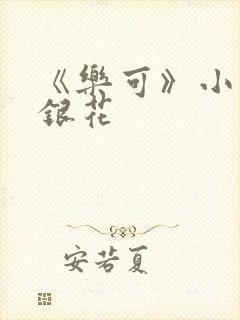 《樂可》小
銀花
安若夏